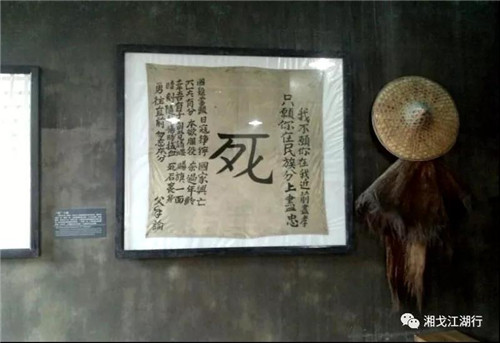 我不願你在我近前盡孝
只願你在民族分上盡忠
死
國難當頭 日寇猙獰 國家興亡
匹夫有分 本欲服役 奈過年齡
幸吾有子 自覺請纓 賜旗一面
時刻隨身 傷時拭血 死後裹身
勇往直前 勿忘本分
父手諭
湘戈江湖行